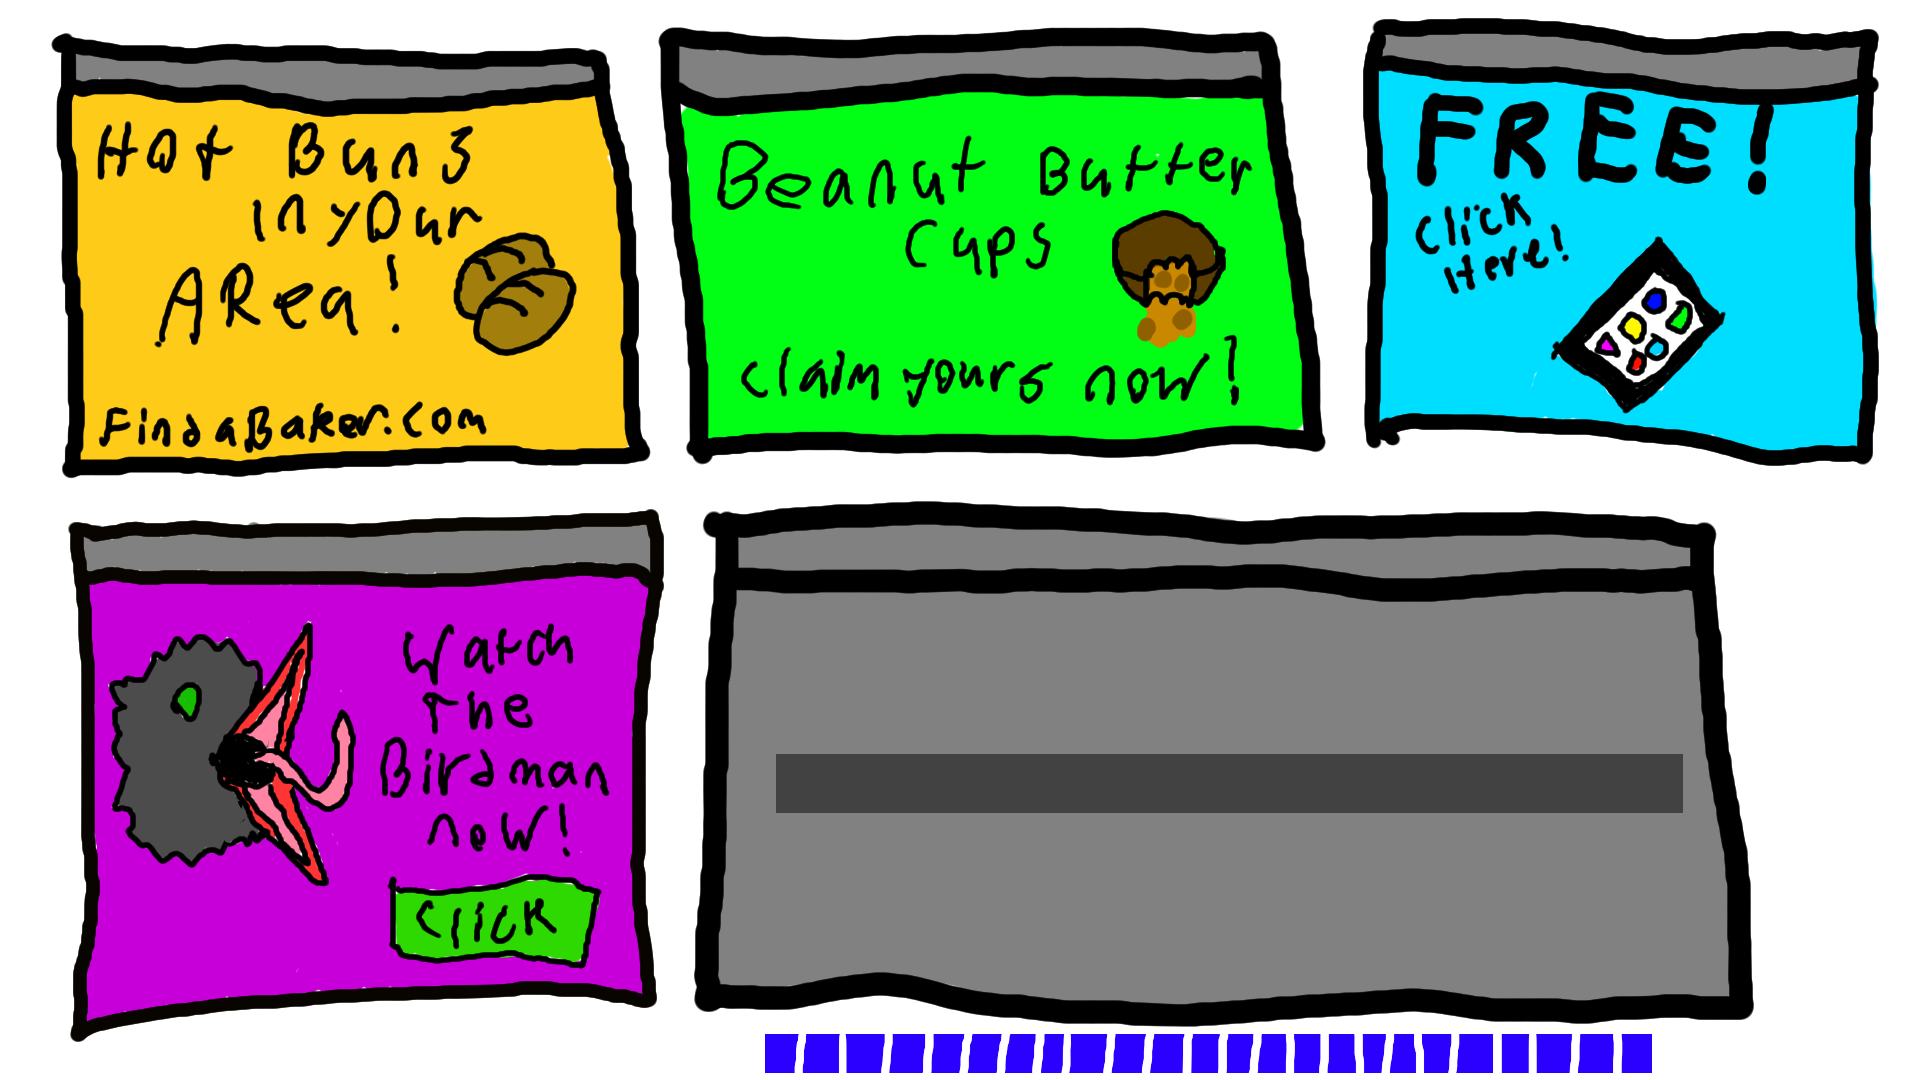 Hot Buns
in your
Area!
FindaBaker.com
Beanut Butter
Cups
claim yours now!
FREE!
Click
Here!
Watch
The
Birdman
now!
Click